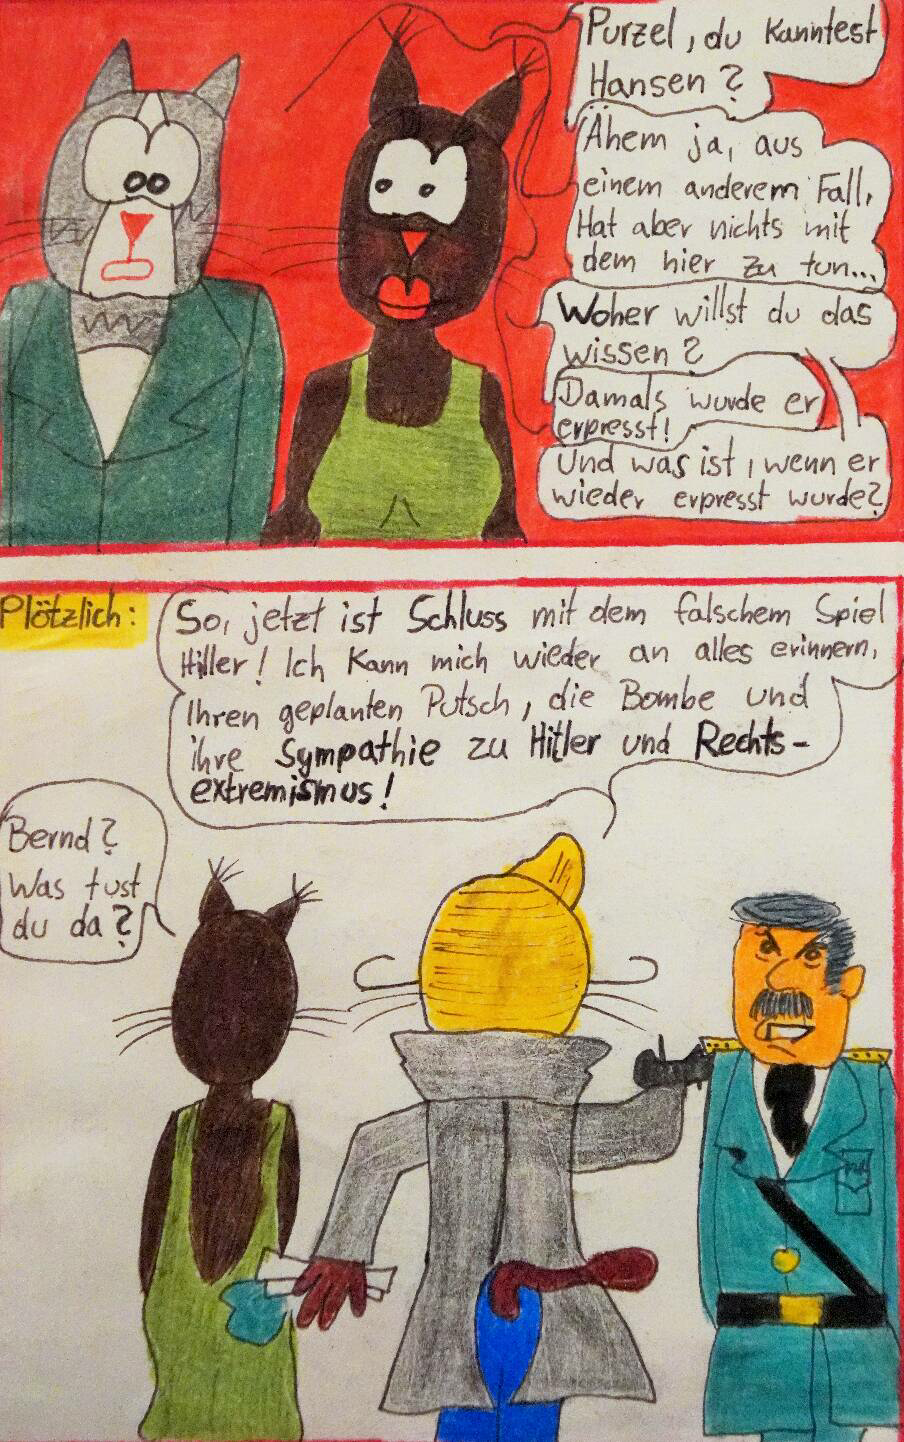 Purzel, du kanntest
Hansen?
Ähem ja, aus
einem anderem Fall,
Hat aber nichts mit
dem hier zu tun...
Woher willst du das
wissen?
Damals wurde er
erpresst!
Und was ist, wenn er
wieder erpresst wurde?
Plötzlich:
So, jetzt ist Schluss mit dem falschem Spiel
Hiller! Ich kann mich wieder an alles erinnern,
Ihren geplanten Putsch, die Bombe und
ihre Sympathie zu Hitler und Rechts-
extremismus!
Bernd?
Was tust
du da?